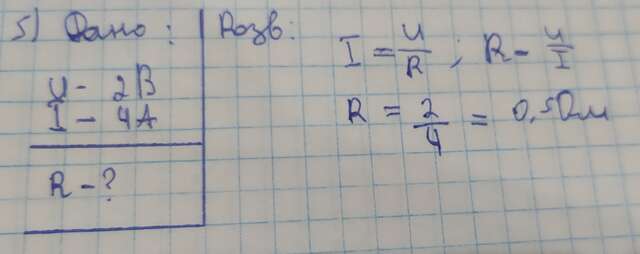 5) Дано:
U - 2В
I - 4А
R - ?
Розв:
I = U/R ; R - U/I
R = 2/4 = 0,5 Ом